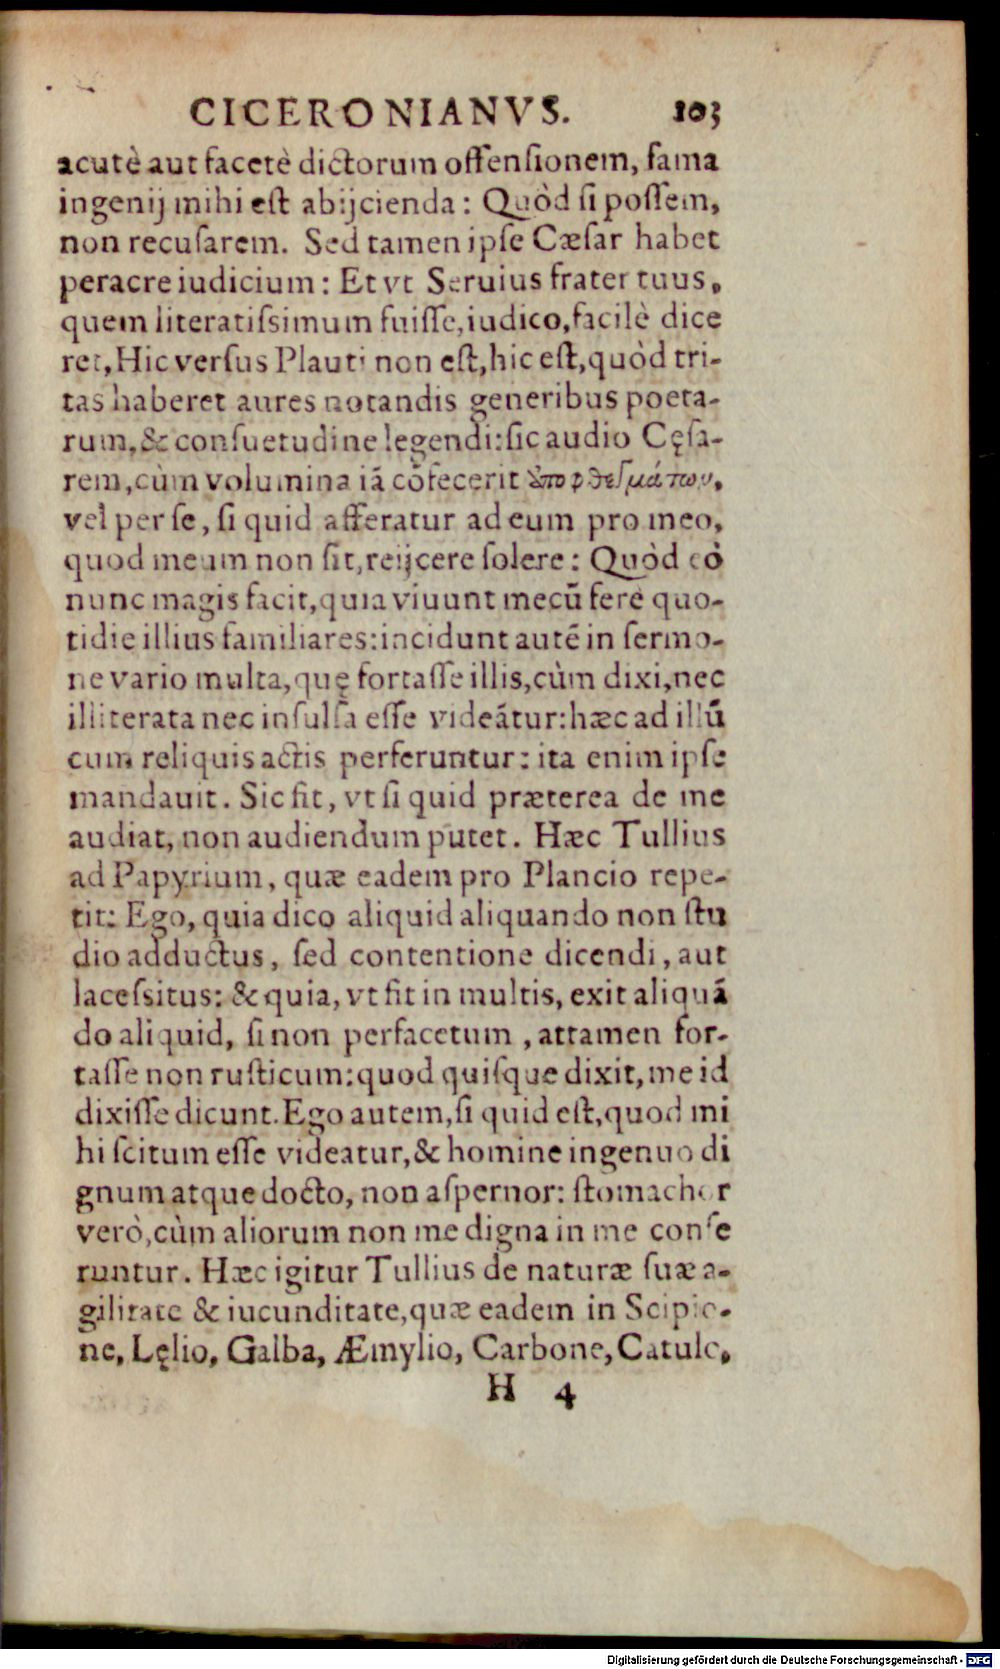 CICERONIANVS. 103
acutè aut facetè dictorum offensionem, fama
ingenij mihi est abijcienda: Quòd si possem,
non recusarem. Sed tamen ipse Cæsar habet
peracre iudicium: Et vt Seruius frater tuus,
quem literatissimum fuisse, iudico, facilè dice
ret, Hic versus Plauti non est, hic est, quòd tri-
tas haberet aures notandis generibus poeta-
rum, & consuetudine legendi: sic audio Cęsa-
rem, cùm volumina iã cõfecerit ἀποφθεγμάτων,
vel per se, si quid afferatur ad eum pro meo,
quod meum non sit, reijcere solere: Quòd eò
nunc magis facit, quia viuunt mecũ ferè quo-
tidie illius familiares: incidunt autẽ in sermo-
ne vario multa, quę fortasse illis, cùm dixi, nec
illiterata nec insulsa esse videãtur: hæc ad illũ
cum reliquis actis perferuntur: ita enim ipse
mandauit. Sic fit, vt si quid præterea de me
audiat, non audiendum putet. Hæc Tullius
ad Papyrium, quæ eadem pro Plancio repe-
tit: Ego, quia dico aliquid aliquando non stu
dio adductus, sed contentione dicendi, aut
lacessitus: & quia, vt fit in multis, exit aliquã
do aliquid, si non perfacetum, attamen for-
tasse non rusticum: quod quisque dixit, me id
dixisse dicunt. Ego autem, si quid est, quod mi
hi scitum esse videatur, & homine ingenuo di
gnum atque docto, non aspernor: stomachor
verò, cùm aliorum non me digna in me confe
runtur. Hæc igitur Tullius de naturæ suæ a-
gilitate & iucunditate, quæ eadem in Scipio-
ne, Lęlio, Galba, Æmylio, Carbone, Catulo,
H 4
Digitalisierung gefördert durch die Deutsche Forschungsgemeinschaft - DFG